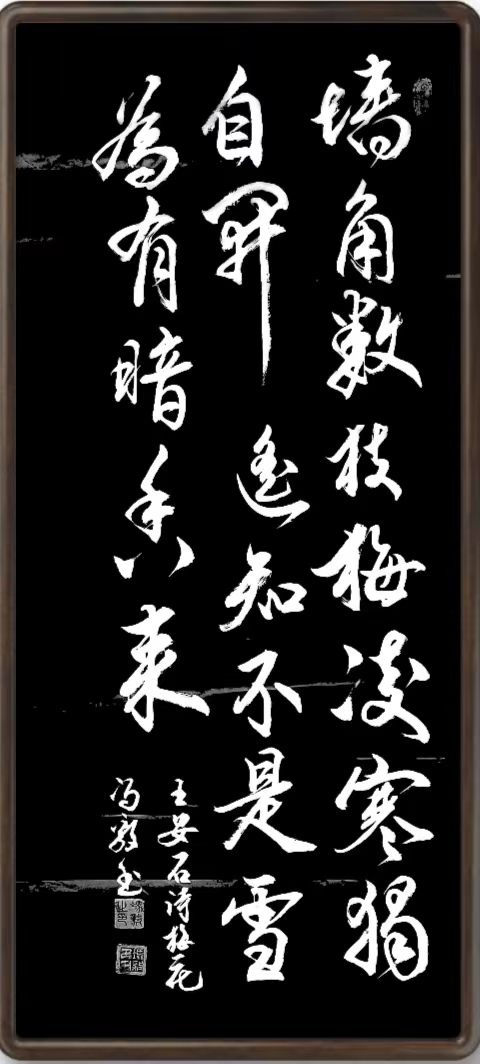 墙角数枝梅凌寒独
自開遥知不是雪
為有暗香来
王安石诗梅花
冯敦玉